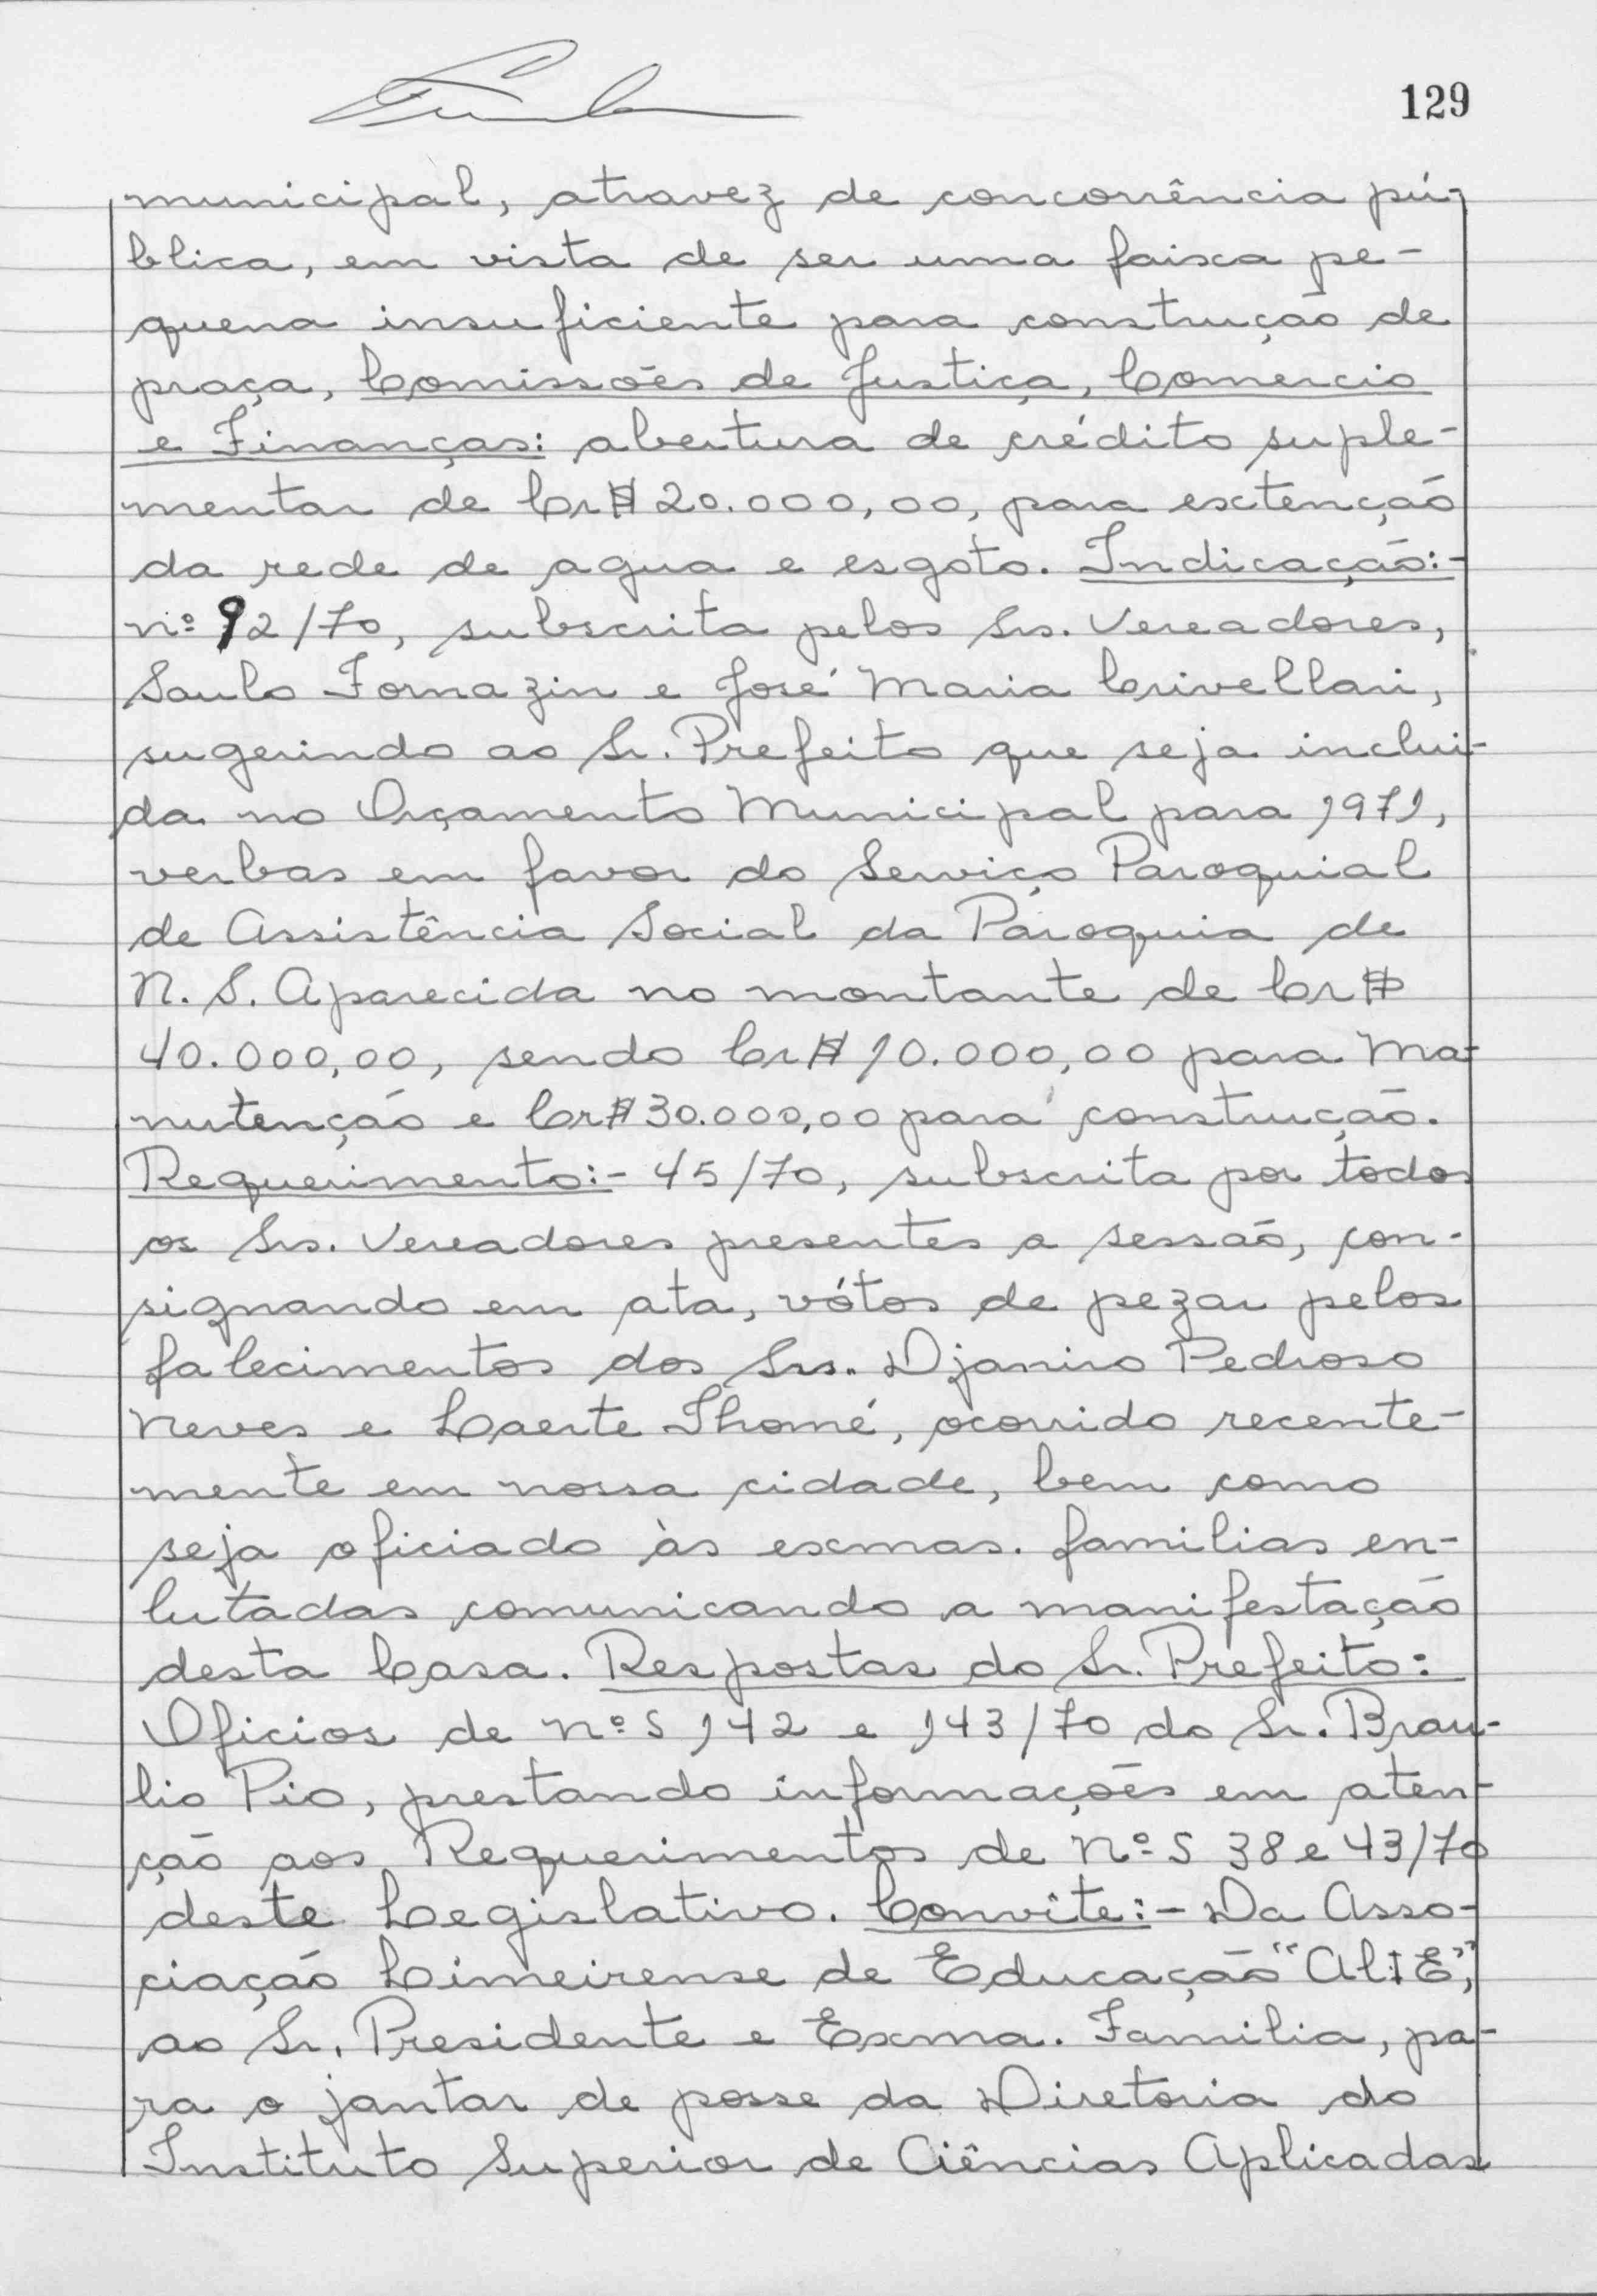 129
municipal, atravez de concorrência pú-
blica, em vista de ser uma faixa pe-
quena insuficiente para construção de
praça, Comissões de Justiça, Comercio
e Finanças: abertura de crédito suple-
mentar de Cr$ 20.000,00, para extenção
da rede de agua e esgoto. Indicação:-
nº 92/70, subscrita pelos Srs. Vereadores,
Saulo Fornazin e José Maria Crivellari,
sugerindo ao Sr. Prefeito que seja inclui-
da no Orçamento Municipal para 1971,
verbas em favor do Serviço Paroquial
de Assistência Social da Paroquia de
N. S. Aparecida no montante de Cr$
40.000,00, sendo Cr$ 10.000,00 para Ma-
nutenção e Cr$ 30.000,00 para construção.
Requerimento:- 45/70, subscrita por todos
os Srs. Vereadores presentes a sessão, con-
signando em ata, vótos de pezar pelos
falecimentos dos Srs. Djaniro Pedroso
Neves e Laerte Thomé, ocorrido recente-
mente em nossa cidade, bem como
seja oficiado às exmas. familias en-
lutadas comunicando a manifestação
desta Casa. Respostas do Sr. Prefeito:
Oficios de nºs 142 e 143/70 do Sr. Brau-
lio Pio, prestando informações em aten-
ção aos Requerimentos de Nºs 38 e 43/70
deste Legislativo. Convite:- Da Asso-
ciação Limeirense de Educação "ALIE",
ao Sr. Presidente e Exma. Familia, pa-
ra o jantar de posse da Diretoria do
Instituto Superior de Ciências Aplicadas